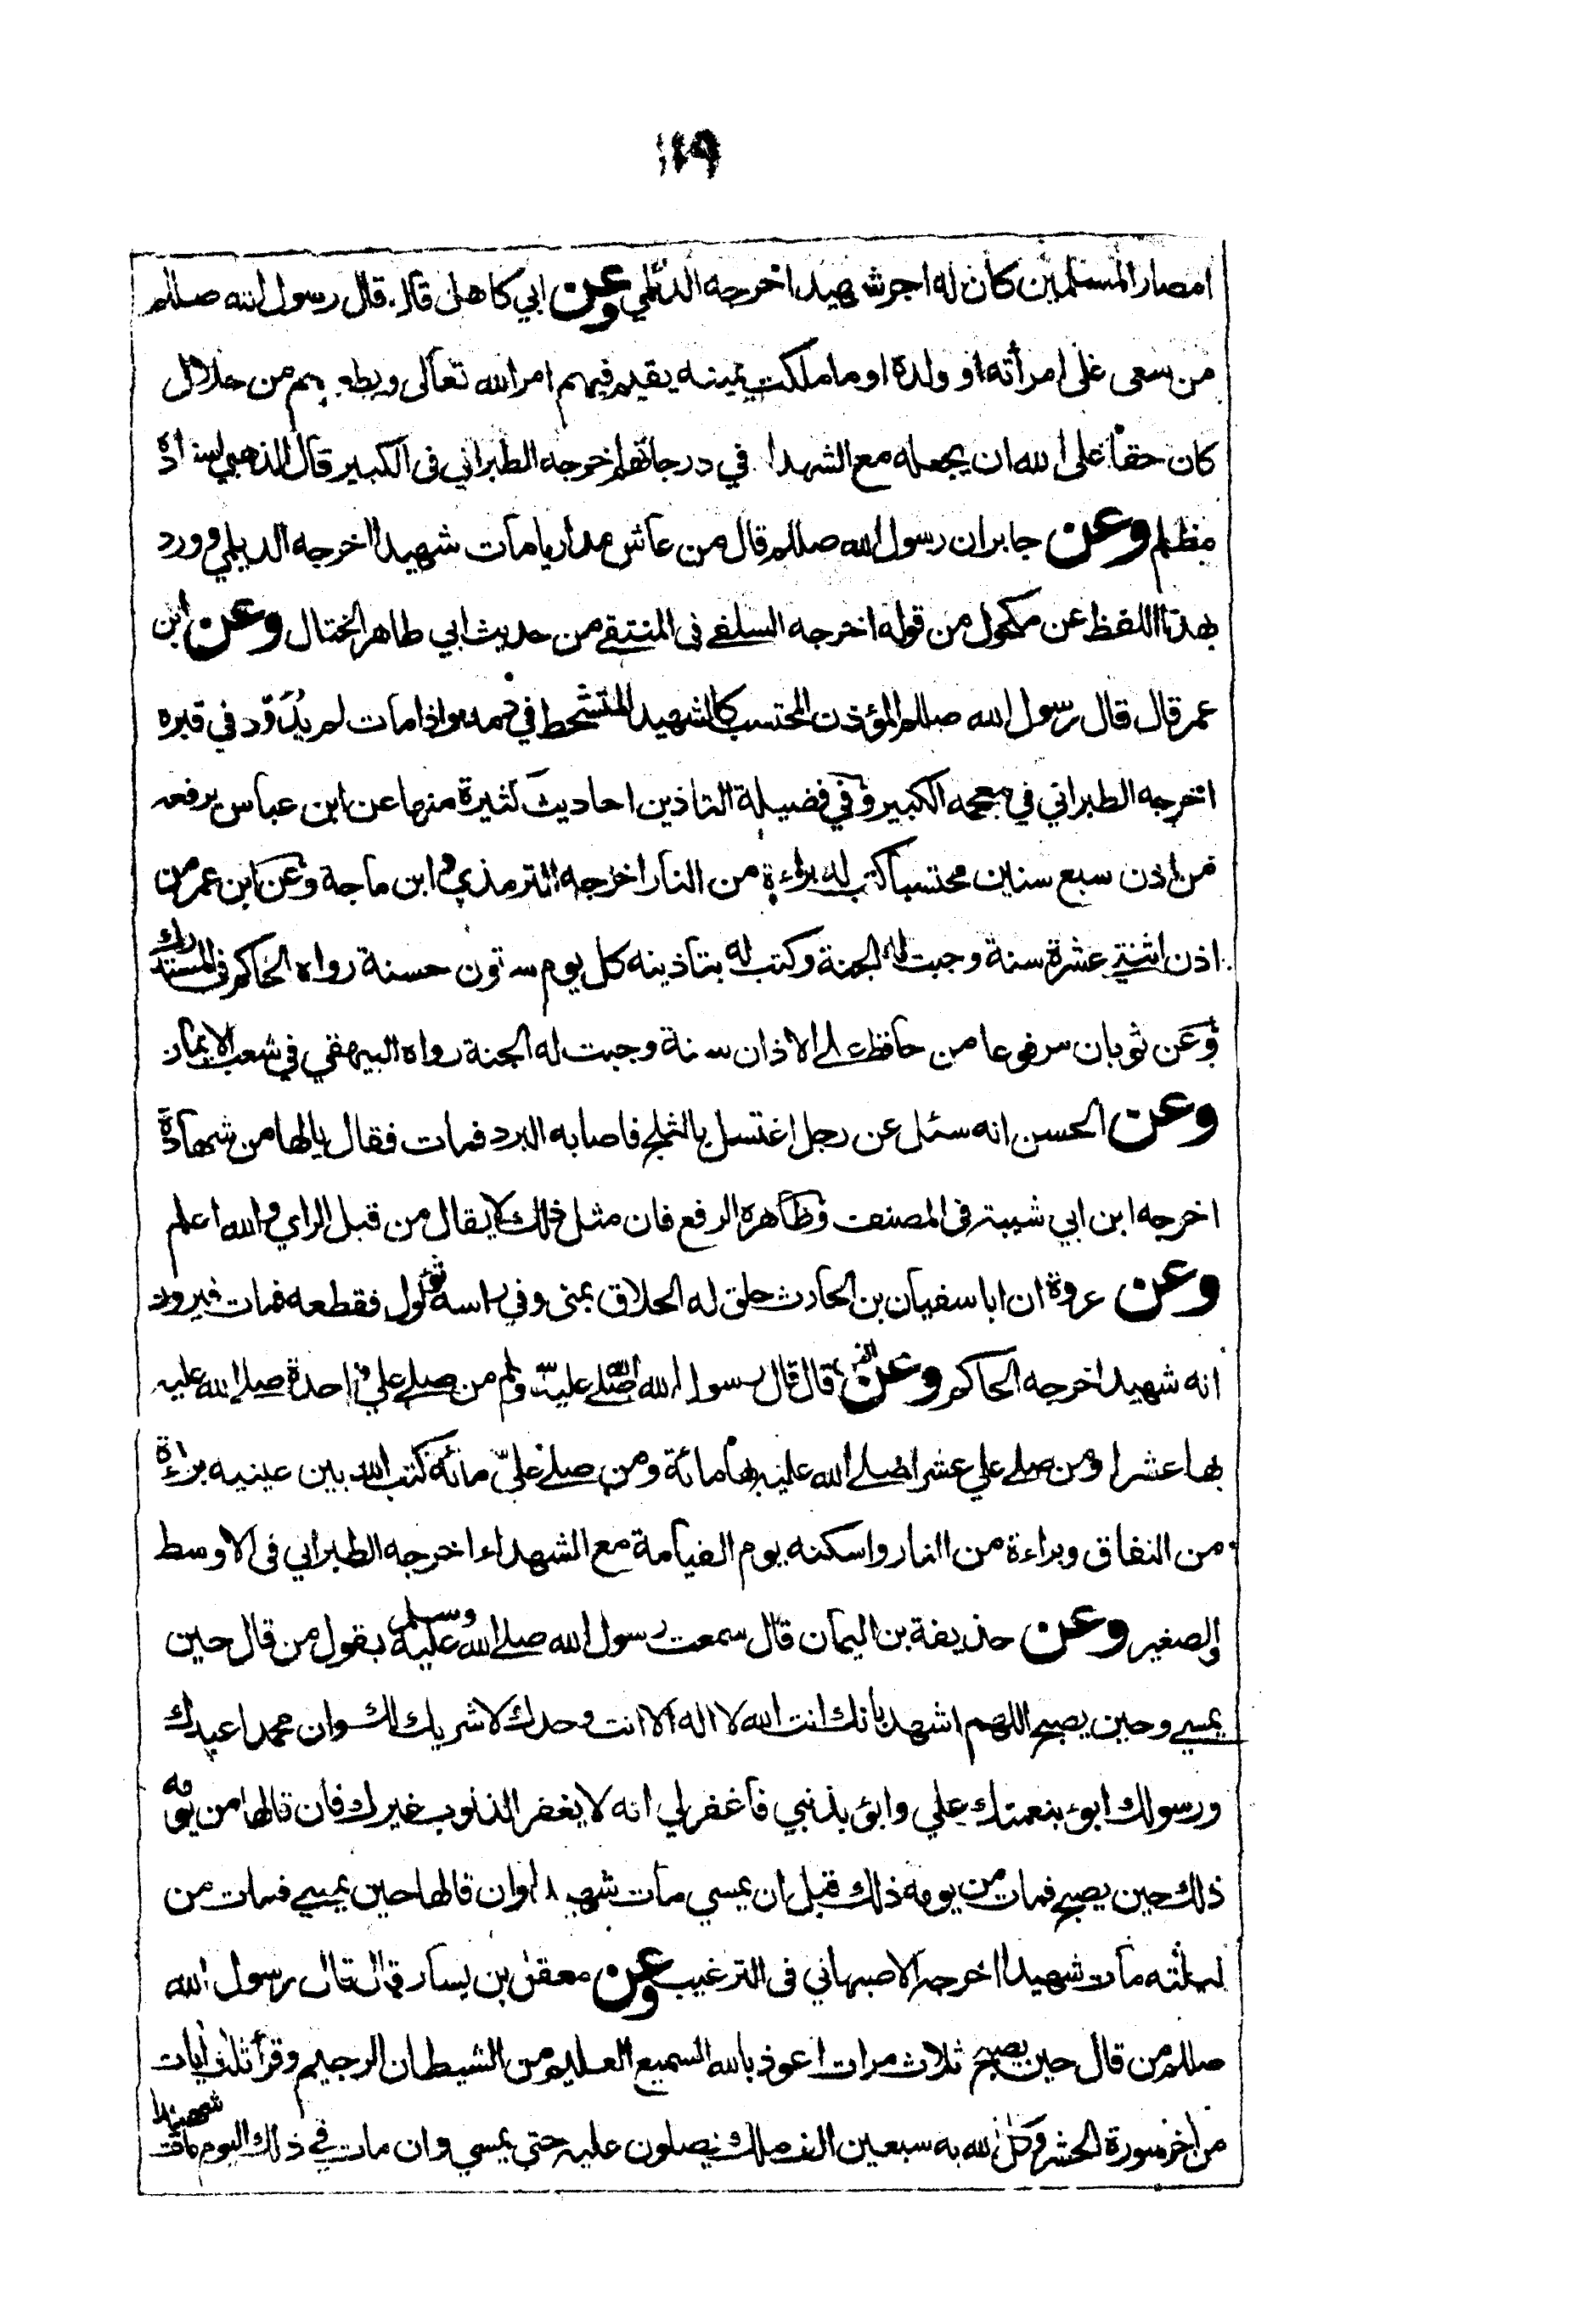 ١١٩
امصار المسلمين كان له اجر شهيد اخرجه الديلمي وعن ابي كاهل قال قال رسول الله صللم
من سعى على امرأته او ولده او ما ملكت يمينه يقيم فيهم امر الله تعالى ويطعمهم من حلال
كان حقا على الله ان يجعله مع الشهدا في درجاتهم اخرجه الطبراني فى الكبير قال الذهبي اسناده
مظلم وعن جابر ان رسول الله صللم قال من عاش مداريا مات شهيدا اخرجه الديلمي وورد
بهذا اللفظ عن مكحول من قوله اخرجه السلفے فى المنتقے من حديث ابي طاهر الختال وعن ابن
عمر قال قال رسول الله صللم المؤذن المحتسب كالشهيد المتشحط في دمه واذا مات لم يدوّد في قبره
اخرجه الطبراني في معجمه الكبير وفي فضيلة التاذين احاديث كثيرة منها عن ابن عباس يرفعه
من اذن سبع سنين محتسبا كتب له براءة من النار اخرجه الترمذي و ابن ماجة وعن ابن عمر من
اذن اثنتے عشرة سنة وجبت له الجنة وكتب له بتاذينه كل يوم ستون حسنة رواه الحاكم فى المستدرك
وعن ثوبان مرفوعا من حافظ علے الاذان سنة وجبت له الجنة رواه البيهقي في شعب الايمان
وعن الحسن انه سئل عن رجل اغتسل بالثلج فاصابه البرد فمات فقال يا لها من شهادة
اخرجه ابن ابي شيبة فى المصنف وظاهره الرفع فان مثل ذلك لا يقال من قبل الراي والله اعلم
وعن عروة ان ابا سفيان بن الحارث حلق له الحلاق بمنى وفي راسه ثؤلول فقطعه فمات فيرون
انه شهيد اخرجه الحاكم وعن انس قال قال رسول الله صلے الله عليه وسلم من صلے علي واحدة صلے الله عليه
بها عشرا ومن صلے علي عشرا صلے الله عليه بها مائة ومن صلے عليّ مائة كتب الله بين عينيه براءة
من النفاق وبراءة من النار واسكنه يوم القيامة مع الشهداء اخرجه الطبراني فى الاوسط
والصغير وعن حذيفة بن اليمان قال سمعت رسول الله صلے الله عليه وسلم يقول من قال حين
يمسے وحين يصبح اللهم اشهد بانك انت الله لا اله الا انت وحدك لا شريك لك وان محمدا عبدك
ورسولك ابوء بنعمتك علي وابوء بذنبي فاغفر لي انه لا يغفر الذنوب غيرك فان قالها من يومه
ذلك حين يصبح فمات من يومه ذلك قبل ان يمسي مات شهيدا وان قالها حين يمسے فمات من
ليلته مات شهيدا اخرجه الاصبهاني فى الترغيب وعن معقل بن يسار قال قال رسول الله
صللم من قال حين يصبح ثلاث مرات اعوذ بالله السميع العليم من الشيطان الرجيم وقرأ ثلث ايات
من اخر سورة الحشر وكل الله به سبعين الف ملك يصلون عليه حتى يمسي وان مات في ذلك اليوم مات شهيدا